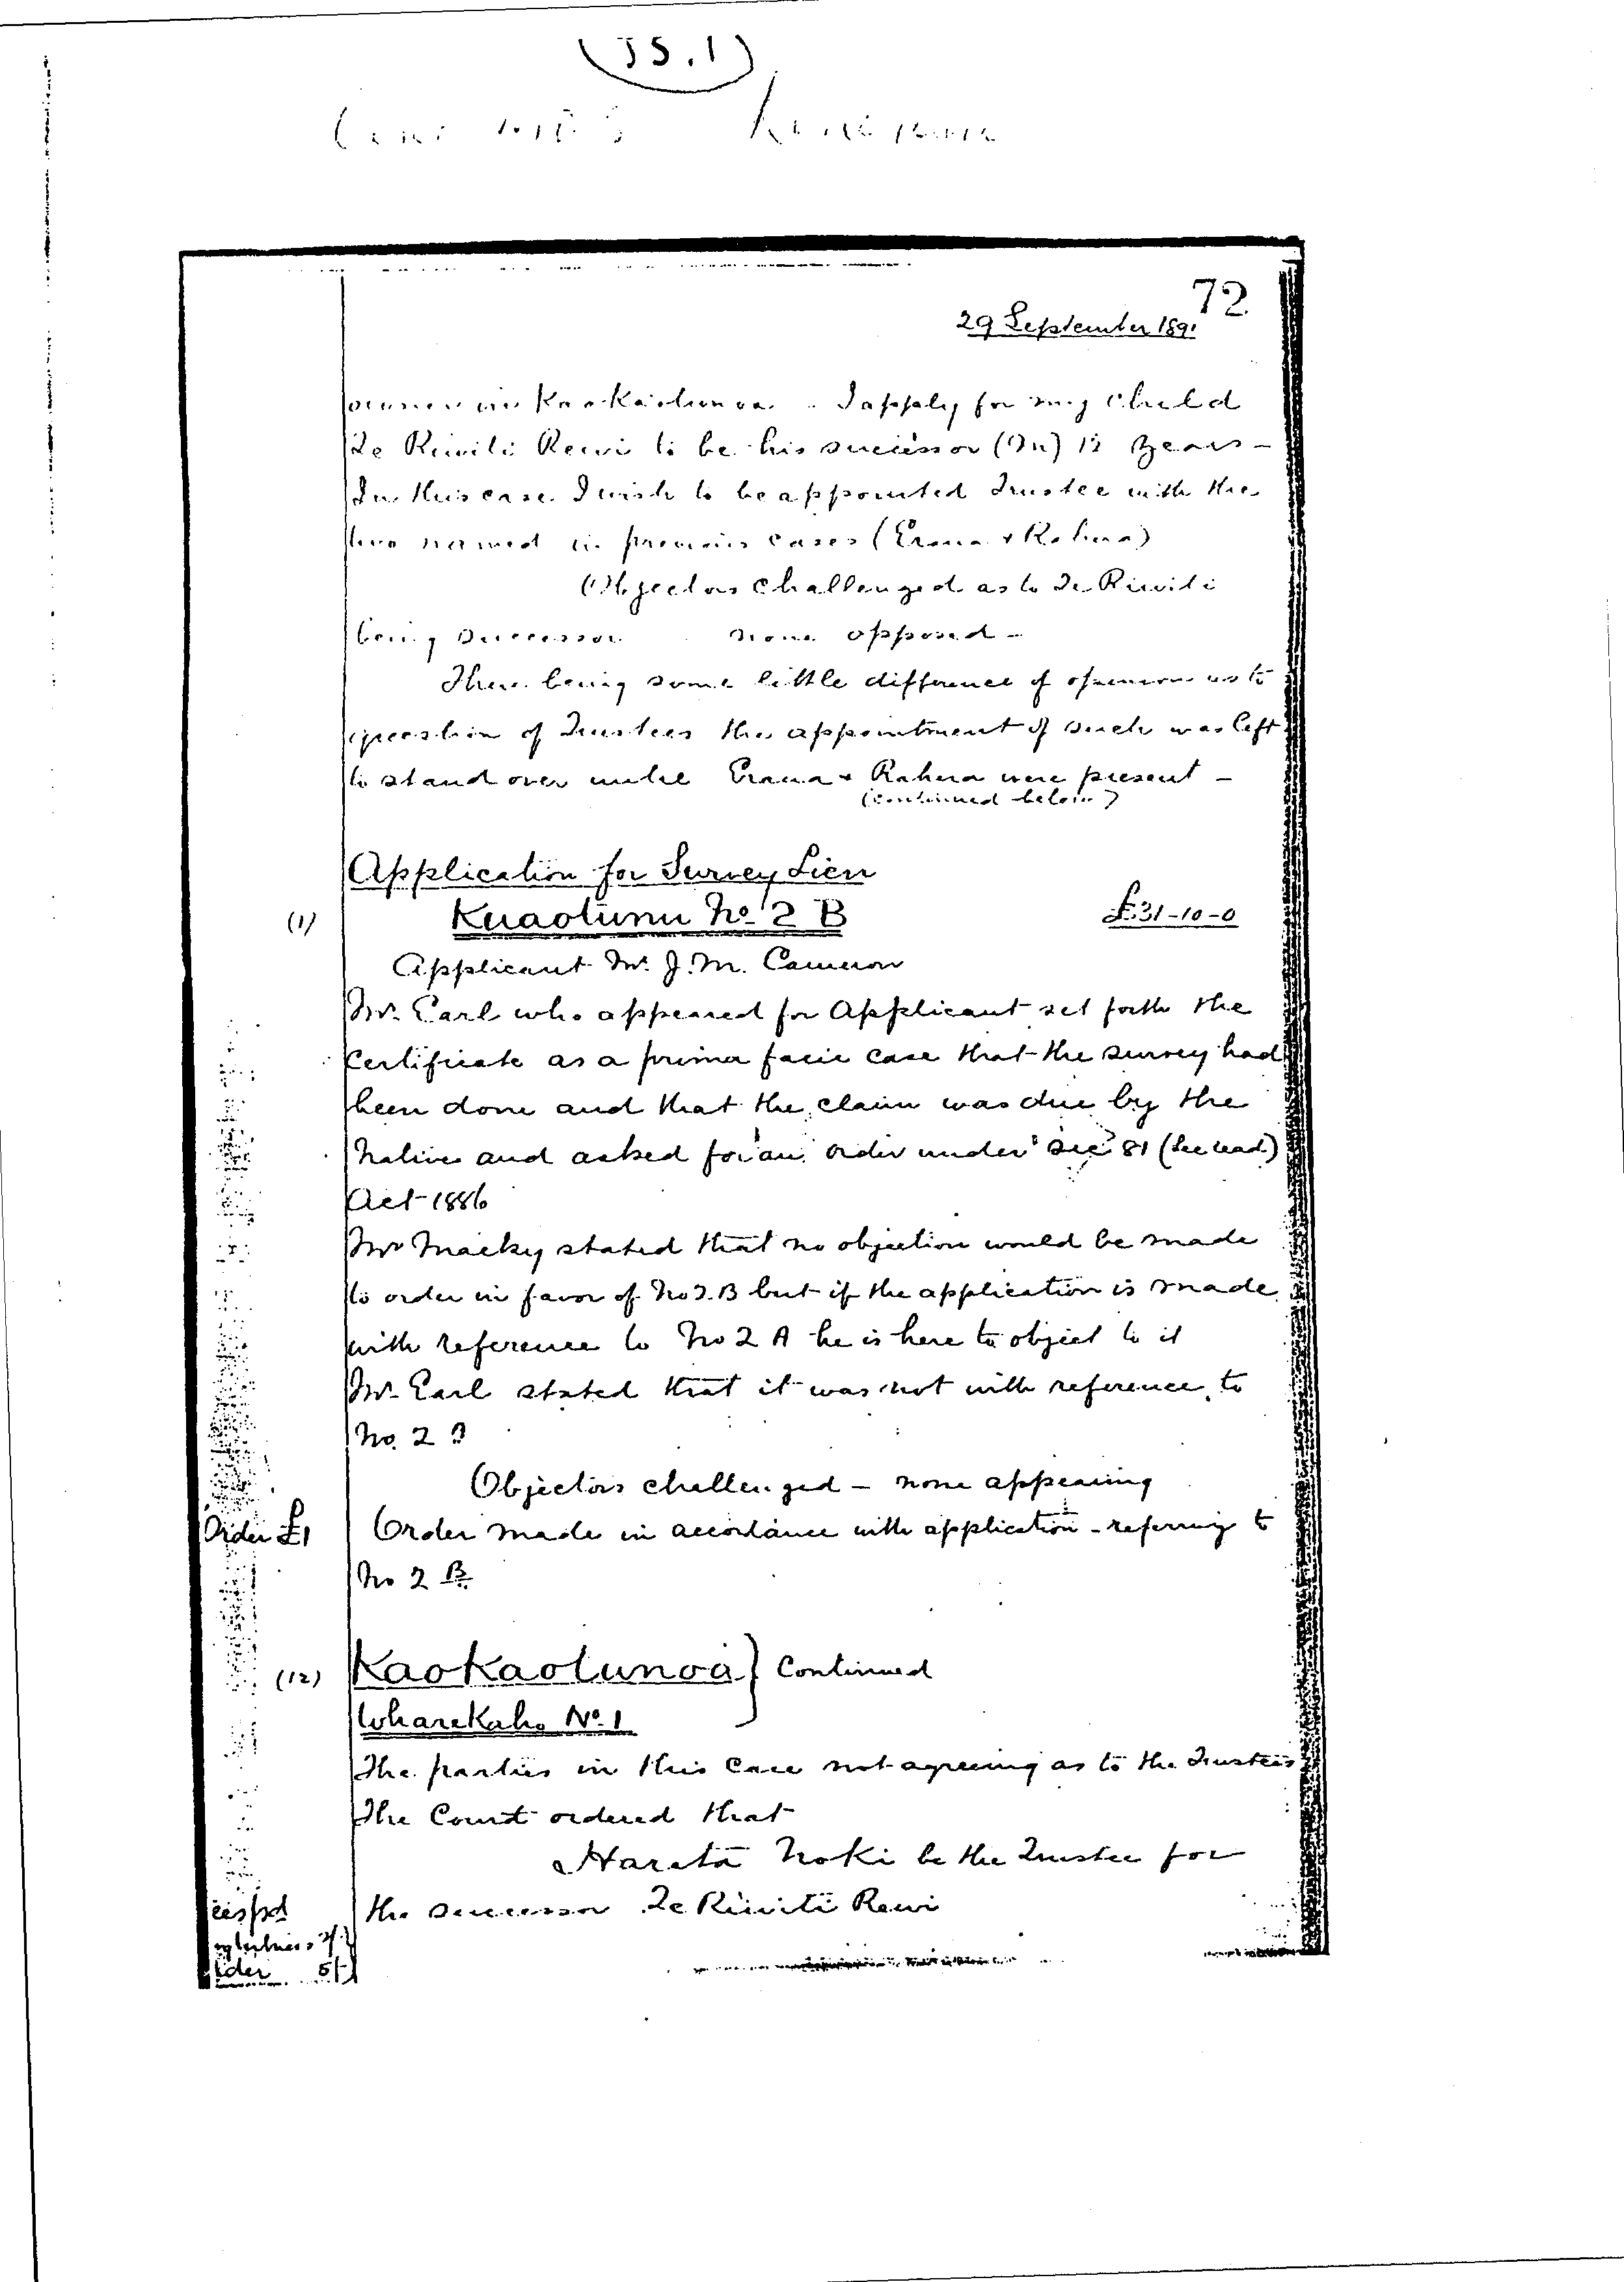 72
29 September 1891
Kaokaotunoa. I apply for my child
Te Riwiti Rewi to be his successor (m) 12 years -
In this case I wish to be appointed Trustee with the
two named in previous cases (Erana & Rahera)
Objectors challenged as to Te Riwiti
being successor none opposed -
There being some little difference of opinion as to
question of Trustees the appointment of such was left
to stand over until Erana & Rahera were present -
(continued below)
Application for Survey Lien
(1) Kuaotunu No 2 B £31-10-0
Applicant Mr. J. M. Cameron
Mr. Earl who appeared for Applicant set forth the
Certificate as a prima facie case that the survey had
been done and that the claim was due by the
Natives and asked for an order under Sec 81
Act 1886
Mr Macky stated that no objection would be made
to order in favor of No 2 B but if the application is made
with reference to No 2 A he is here to object to it
Mr. Earl stated that it was not with reference to
No. 2 B
Objectors challenged - none appearing
Order £1 Order made in accordance with application - referring to
No 2 B
(12) Kaokaotunoa } Continued
Wharekaho No. 1
The parties in this case not agreeing as to the Trustees
The Court ordered that
Harata Noki be the Trustee for
the successor Te Riwiti Rewi